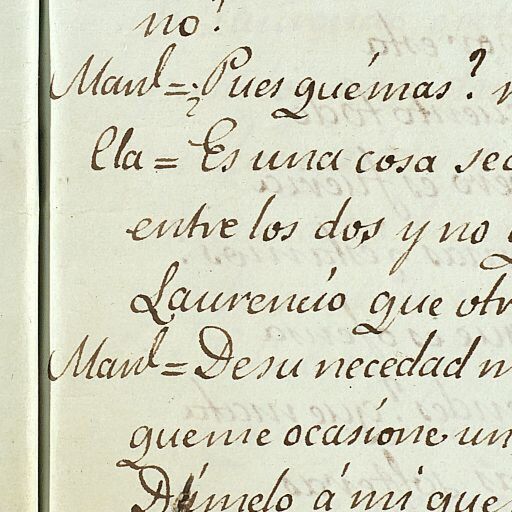 no?
Man.l = ¿Pues quémas? n
Cla = Es una cosa sec
entre los dos y no q
Laurencio que otr
Man.l = De su necedad m
queme ocasíone un
Dámelo á mi que